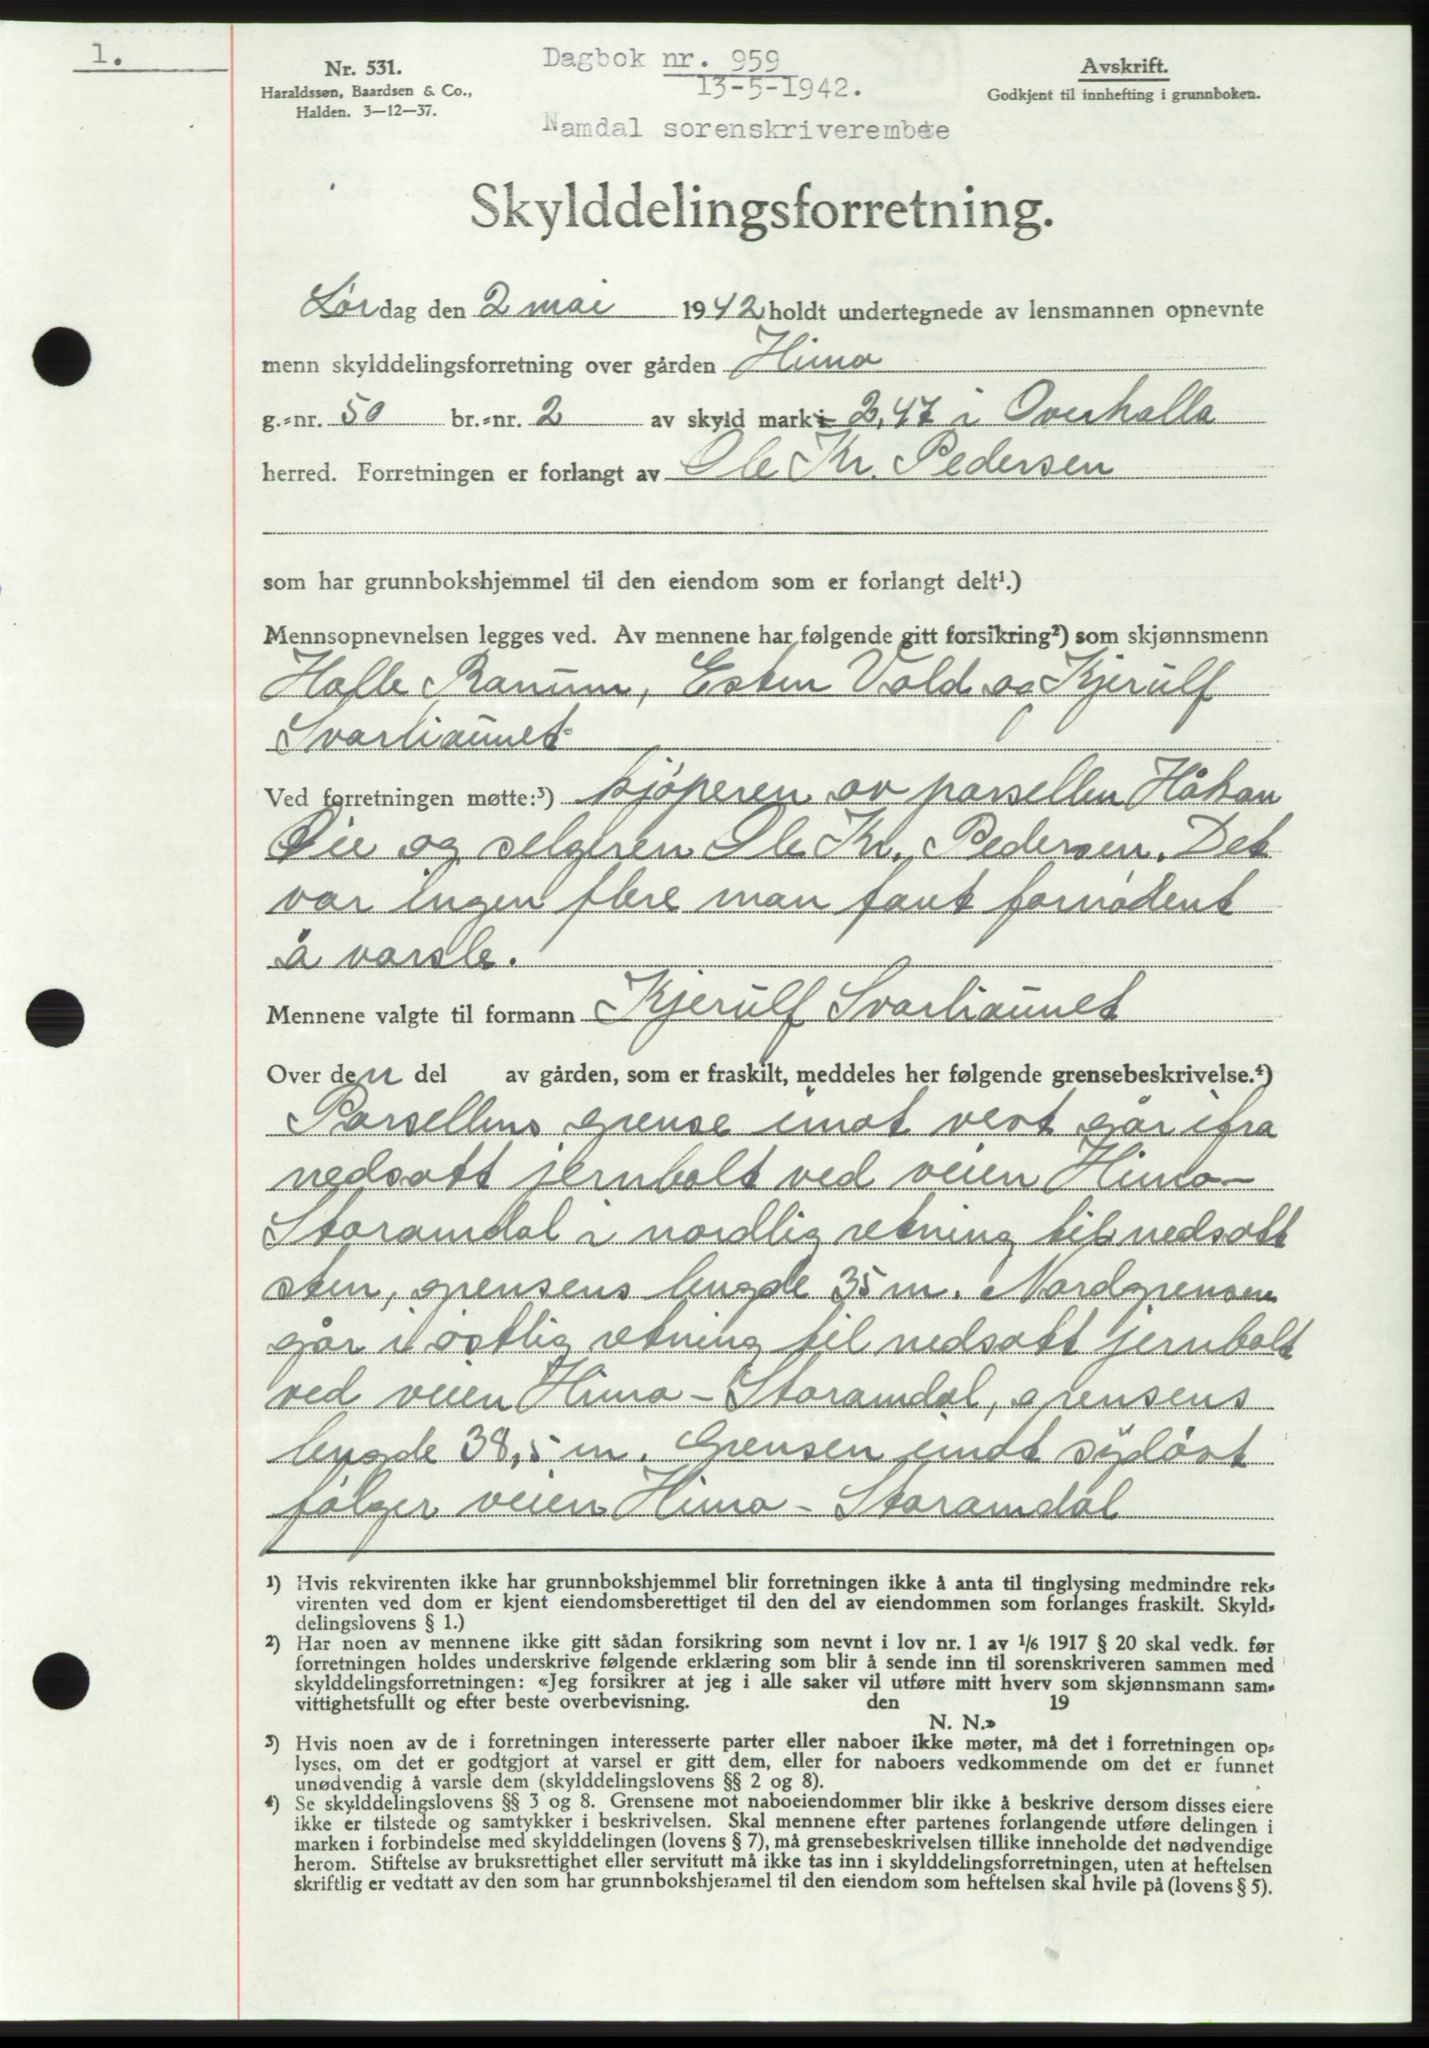 1.
Nr. 531.
Haraldssøn, Baardsen & Co.,
Halden. 3—12—37.
Dagbok nr. 959
13-5-1942.
Namdal sorenskriverembete
Avskrift.
Godkjent til innhefting i grunnboken.
Skylddelingsforretning.
Lørdag den 2 mai 1942 holdt undertegnede av lensmannen opnevnte
menn skylddelingsforretning over gården Himo
g.-nr. 50 br.-nr. 2 av skyld mark 2,47 i Overhalla
herred. Forretningen er forlangt av Ole Kr. Pedersen
som har grunnbokshjemmel til den eiendom som er forlangt delt¹.)
Mennsopnevnelsen legges ved. Av mennene har følgende gitt forsikring²) som skjønnsmenn
Halle Ranum, Esten Vold og Kjerulf
Svarliaunet
Ved forretningen møtte:³) kjøperen av parsellen Håkon
Øie og selgeren Ole Kr. Pedersen. Det
var ingen flere man fant fornødent
å varsle.
Mennene valgte til formann Kjerulf Svarliaunet
Over den del av gården, som er fraskilt, meddeles her følgende grensebeskrivelse.⁴)
Parsellens grense imot vest går ifra
nedsatt jernbolt ved veien Himo-
Storamdal i nordlig retning til nedsatt
sten, grensens lengde 35 m. Nordgrensen
går i østlig retning til nedsatt jernbolt
ved veien Himo - Storamdal, grensens
lengde 38,5 m. Grensen imot sydøst
følger veien Himo - Storamdal
¹) Hvis rekvirenten ikke har grunnbokshjemmel blir forretningen ikke å anta til tinglysing medmindre rek-
virenten ved dom er kjent eiendomsberettiget til den del av eiendommen som forlanges fraskilt. Skyld-
delingslovens § 1.)
²) Har noen av mennene ikke gitt sådan forsikring som nevnt i lov nr. 1 av 1/6 1917 § 20 skal vedk. før
forretningen holdes underskrive følgende erklæring som blir å sende inn til sorenskriveren sammen med
skylddelingsforretningen: «Jeg forsikrer at jeg i alle saker vil utføre mitt hverv som skjønnsmann sam-
vittighetsfullt og efter beste overbevisning. den 19
N. N.»
³) Hvis noen av de i forretningen interesserte parter eller naboer ikke møter, må det i forretningen op-
lyses, om det er godtgjort at varsel er gitt dem, eller for naboers vedkommende om det er funnet
unødvendig å varsle dem (skylddelingslovens §§ 2 og 8).
⁴) Se skylddelingslovens §§ 3 og 8. Grensene mot naboeiendommer blir ikke å beskrive dersom disses eiere
ikke er tilstede og samtykker i beskrivelsen. Skal mennene efter partenes forlangende utføre delingen i
marken i forbindelse med skylddelingen (lovens § 7), må grensebeskrivelsen tillike inneholde det nødvendige
herom. Stiftelse av bruksrettighet eller servitutt må ikke tas inn i skylddelingsforretningen, uten at heftelsen
skriftlig er vedtatt av den som har grunnbokshjemmel til den eiendom som heftelsen skal hvile på (lovens § 5).